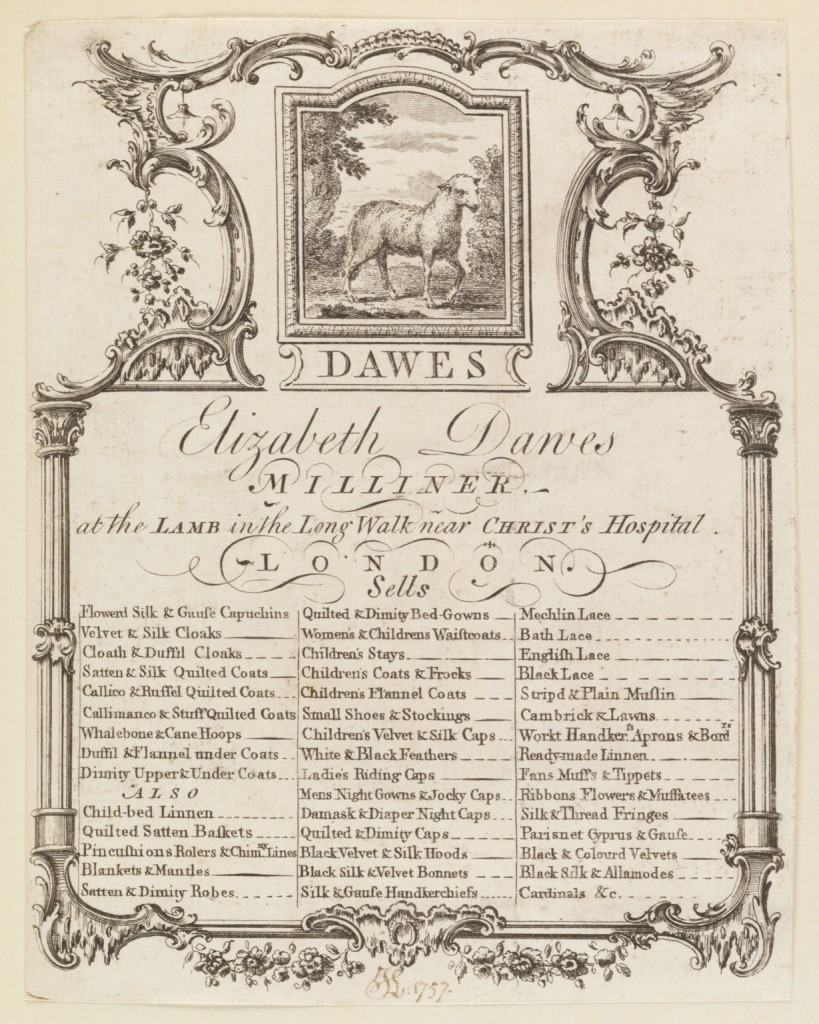 DAWES
Elizabeth Dawes
MILLINER.
at the LAMB in the Long Walk near CHRIST's Hospital.
LONDON.
Sells
Flowerd Silk & Gauſe Capuchins
Velvet & Silk Cloaks
Cloath & Duffil Cloaks
Satten & Silk Quilted Coats
Callico & Ruffel Quilted Coats
Callimanco & Stuff Quilted Coats
Whalebone & Cane Hoops
Duffil & Flannel under Coats
Dimity Upper & Under Coats
ALSO
Child-bed Linnen
Quilted Satten Baſkets
Pincuſhions Rolers & Chim.ny Lines
Blankets & Mantles
Satten & Dimity Robes
Quilted & Dimity Bed-Gowns
Women's & Childrens Waiſtcoats
Children's Stays
Children's Coats & Frocks
Children's Flannel Coats
Small Shoes & Stockings
Children's Velvet & Silk Caps
White & Black Feathers
Ladie's Riding Caps
Mens Night Gowns & Jocky Caps
Damask & Diaper Night Caps
Quilted & Dimity Caps
Black Velvet & Silk Hoods
Black Silk & Velvet Bonnets
Silk & Gauſe Handkerchiefs
Mechlin Lace
Bath Lace
Engliſh Lace
Black Lace
Strip'd & Plain Muſlin
Cambrick & Lawns
Workt Handker.fs Aprons & Bord.rs
Ready-made Linnen
Fans Muffs & Tippets
Ribbons Flowers & Muffatees
Silk & Thread Fringes
Parisnet Cyprus & Gauſe
Black & Colourd Velvets
Black Silk & Allamodes
Cardinals &c.
1757.